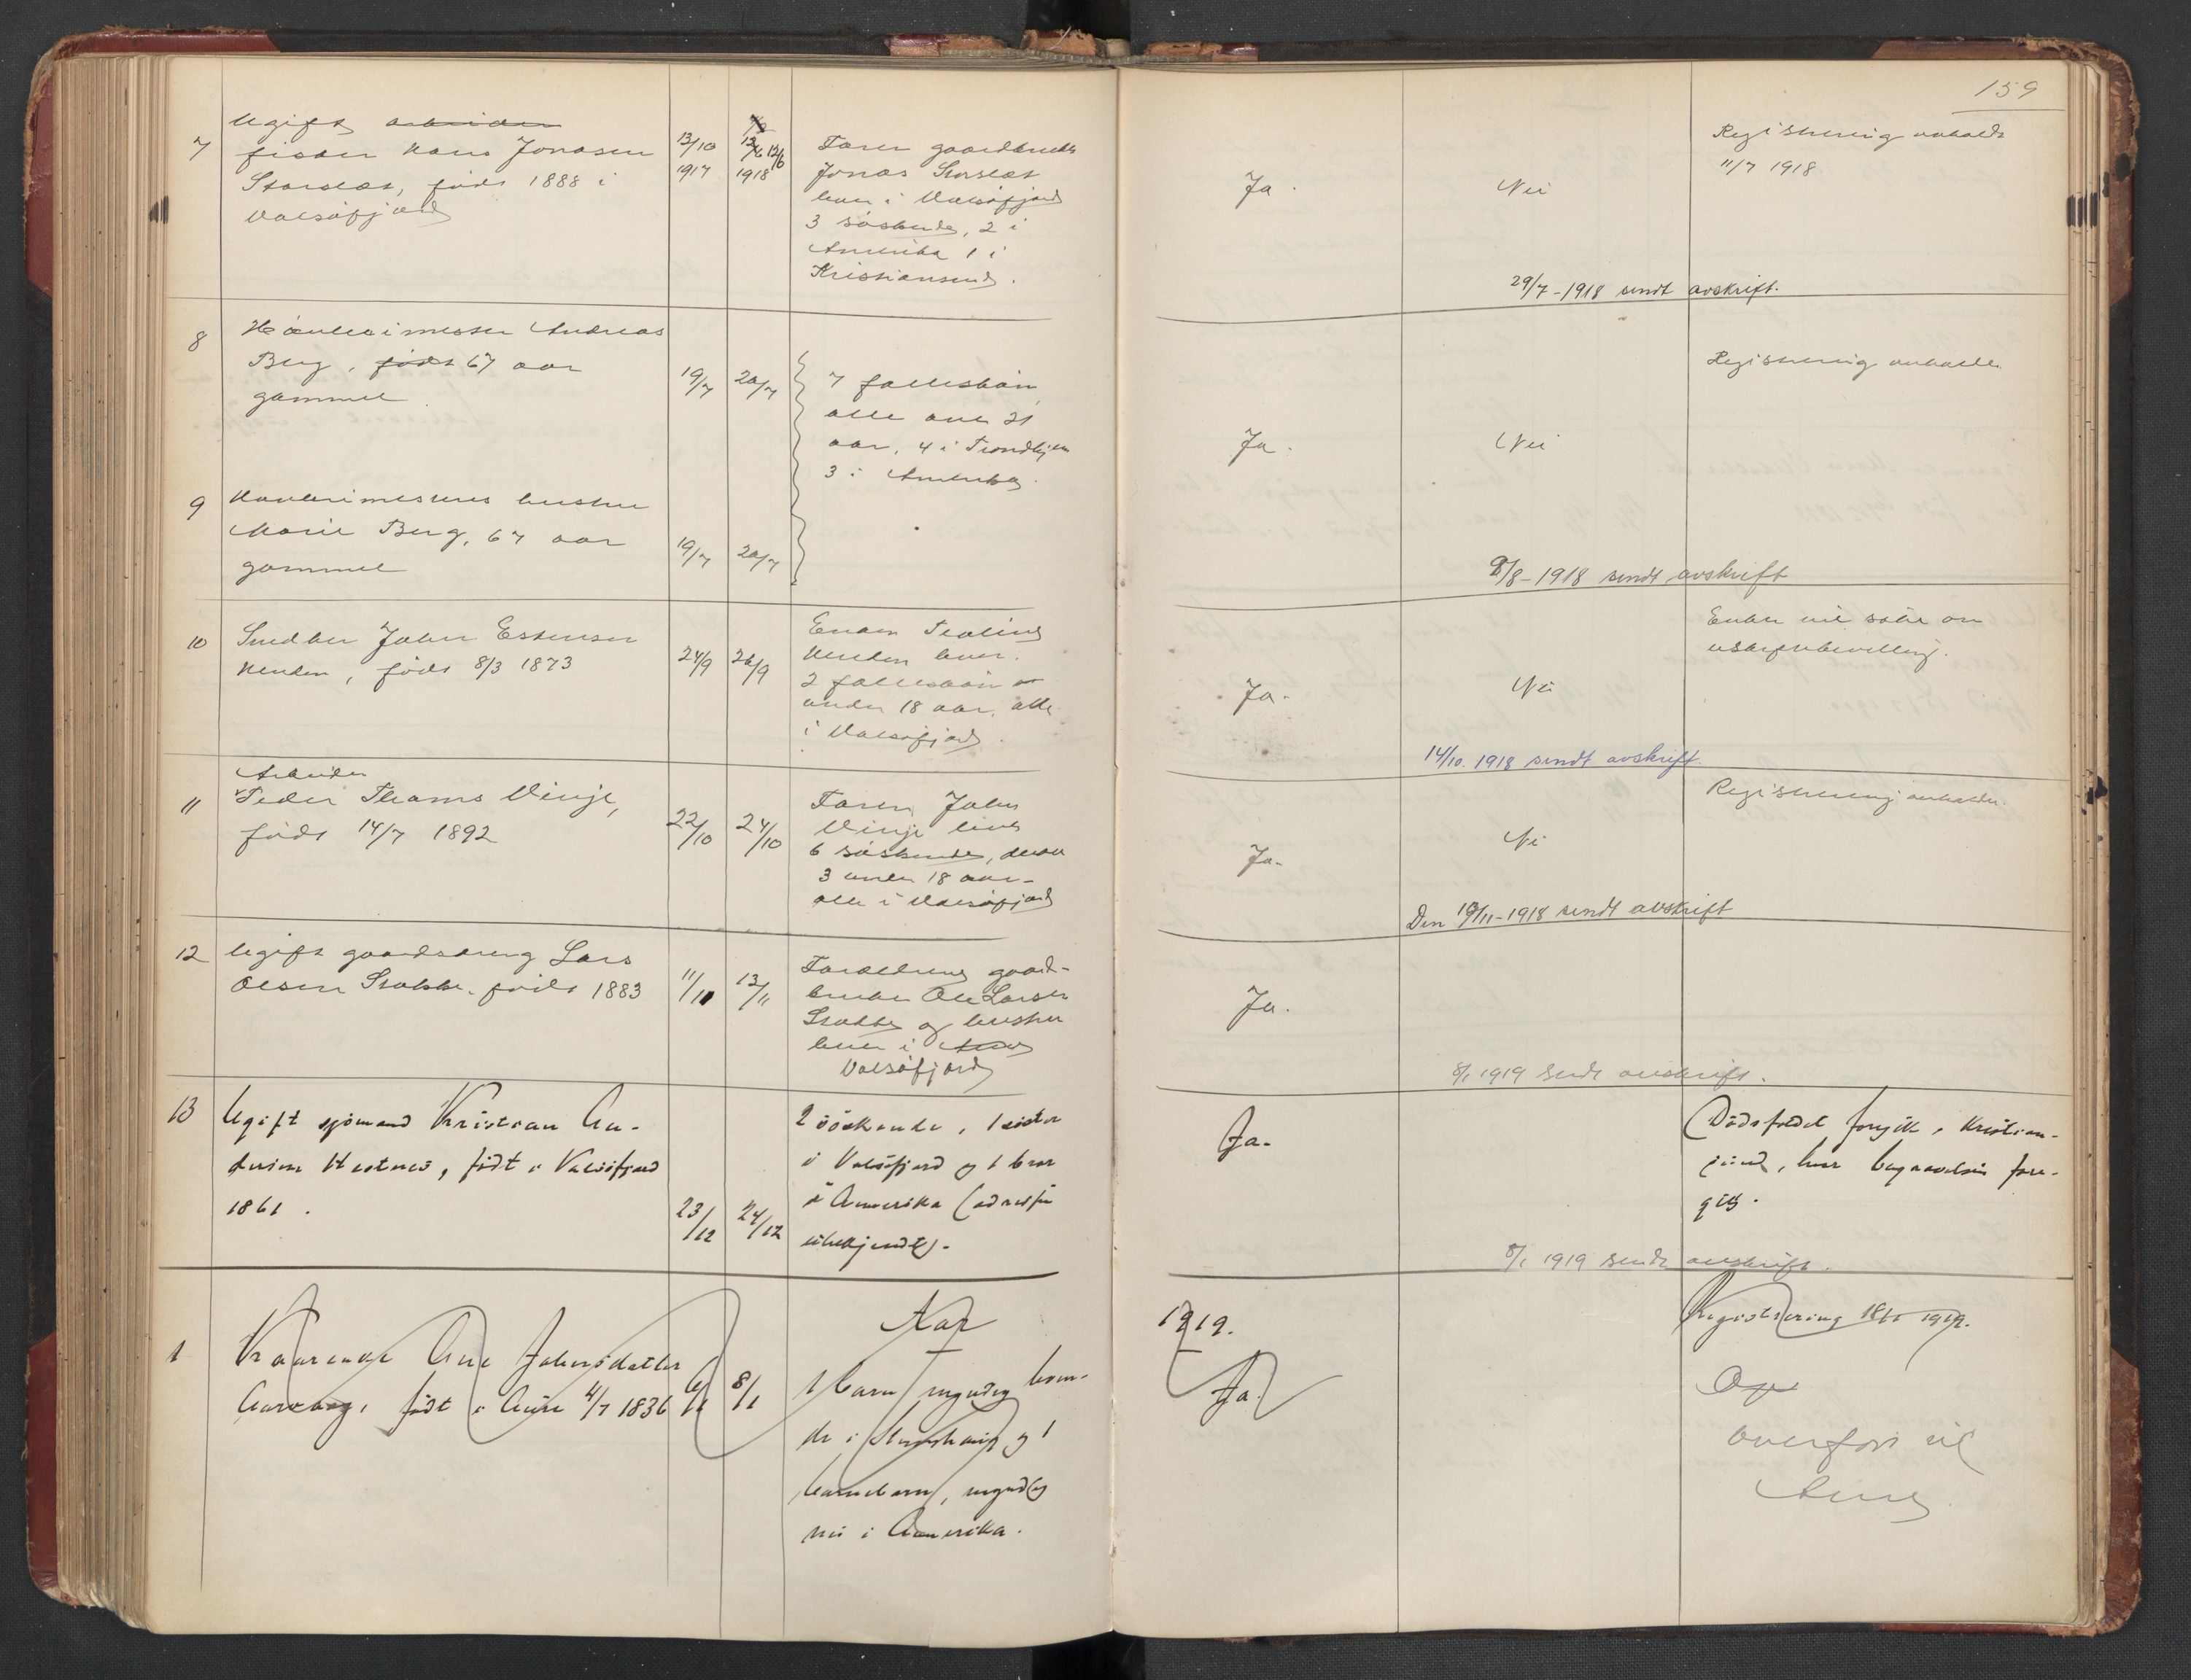 159
7
Ugift arbeider
fisker Hans Jonasen
Storslæt, født 1888 i
Valsøfjord
13/10
1917
12/6
1918
Faren gaardbruker
Jonas Storslæt
bor i Valsøfjord
3 søskende, 2 i
Amerika 1 i
Kristiansund.
Ja.
Nei
Registrering anholdt
11/7 1918.
29/7-1918 sendt avskrift.
8
Andreas
Berg, født 67 aar
gammel
19/7
20/7
7 fællesbørn
alle over 21
aar, 4 i Trondhjem
3 i Amerika.
Ja.
Nei
Registrering anholdt
9
hustru
Marie Berg, 67 aar
gammel
19/7
20/7
9/8-1918 sendt avskrift
10
Snedker Johan Estensen
Henden, født 8/3 1873
24/9
26/9
Enken
Henden lever.
2 fællesbørn
under 18 aar, alle
i Valsøfjord.
Ja.
Nei
Enken vil søke om
uskiftebevilling.
14/10. 1918 sendt avskrift
11
Arbeider
Peder Thoms Vinje,
født 14/7 1892
22/10
24/10
Faren John
Vinje lever
6 søskende, derav
3 under 18 aar-
alle i Valsøfjord
Ja.
Nei
Registrering anholdes.
Den 19/11-1918 sendt avskrift
12
Ugift gaardsdreng Lars
Olsen Stokke. født 1883
11/11
13/11
Forældrene gaard-
bruker Ole Larsen
Stokke og hustru
bor i Aure
Valsøfjord
Ja.
8/1 1919 sendt avskrift.
13
Ugift sjømand Kristian An-
dersen Hestnes, født i Valsøfjord
1861.
23/12
24/12
2 søskende, 1 søster
i Valsøfjord og 1 bror
i Amerika (adresse
ubekjendt).
Ja.
Dødsfaldet foregik i Kristian-
sund, hvor begravelsen fore-
gik.
8/1 1919 sendt avskrift.
1919.
1
Kaarenke Ane Johnsdatter
født i Aure 4/7 1836
6/1
8/1
Nar
1 barn, myndig boen-
de i Stemshaug og 1
barnebarn, myndig
nu i Amerika.
Ja.
Registrering 18/1 1919.
Overført til
Aure